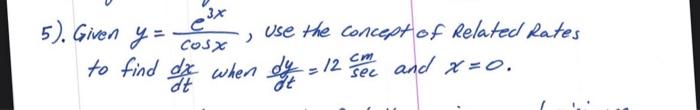 5). Given y = e^3x / cosx , use the concept of Related Rates
to find dx/dt when dy/dt = 12 cm/sec and x = 0.